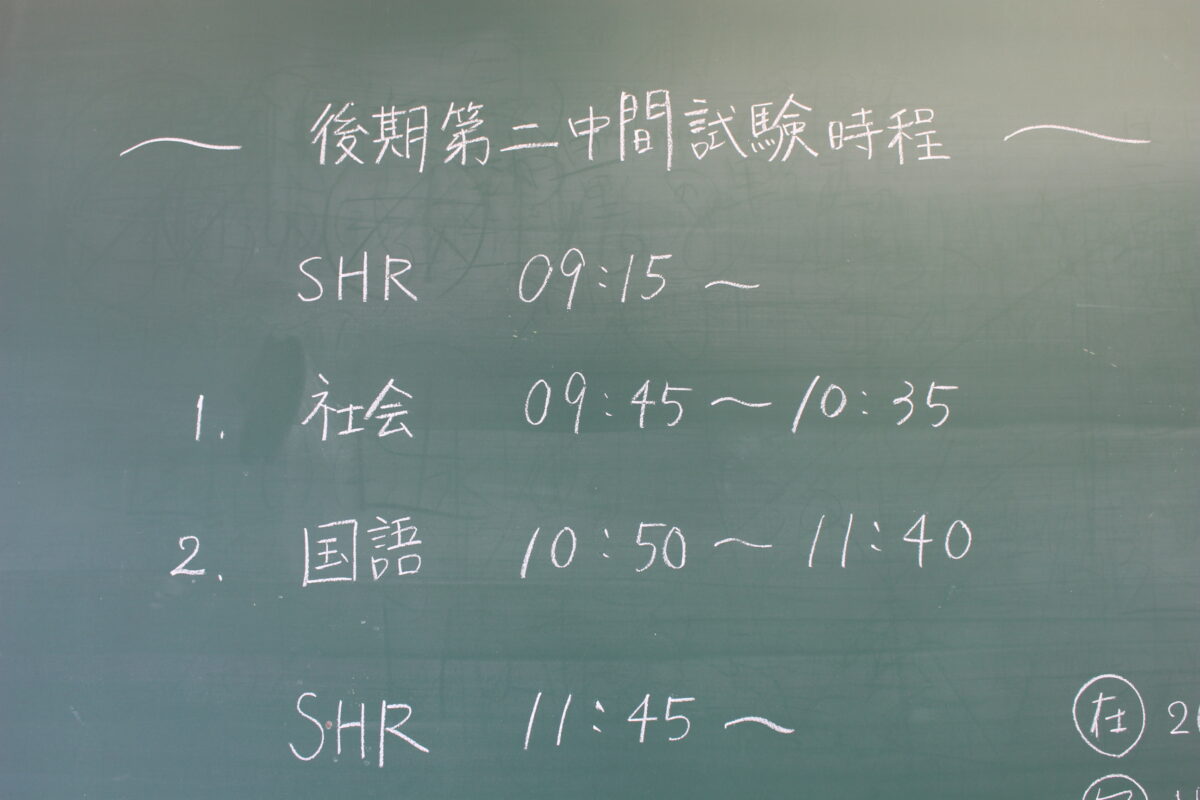 〜 後期第二中間試験時程 〜
SHR 09:15 〜
1. 社会 09:45 〜 10:35
2. 国語 10:50 〜 11:40
SHR 11:45 〜
在